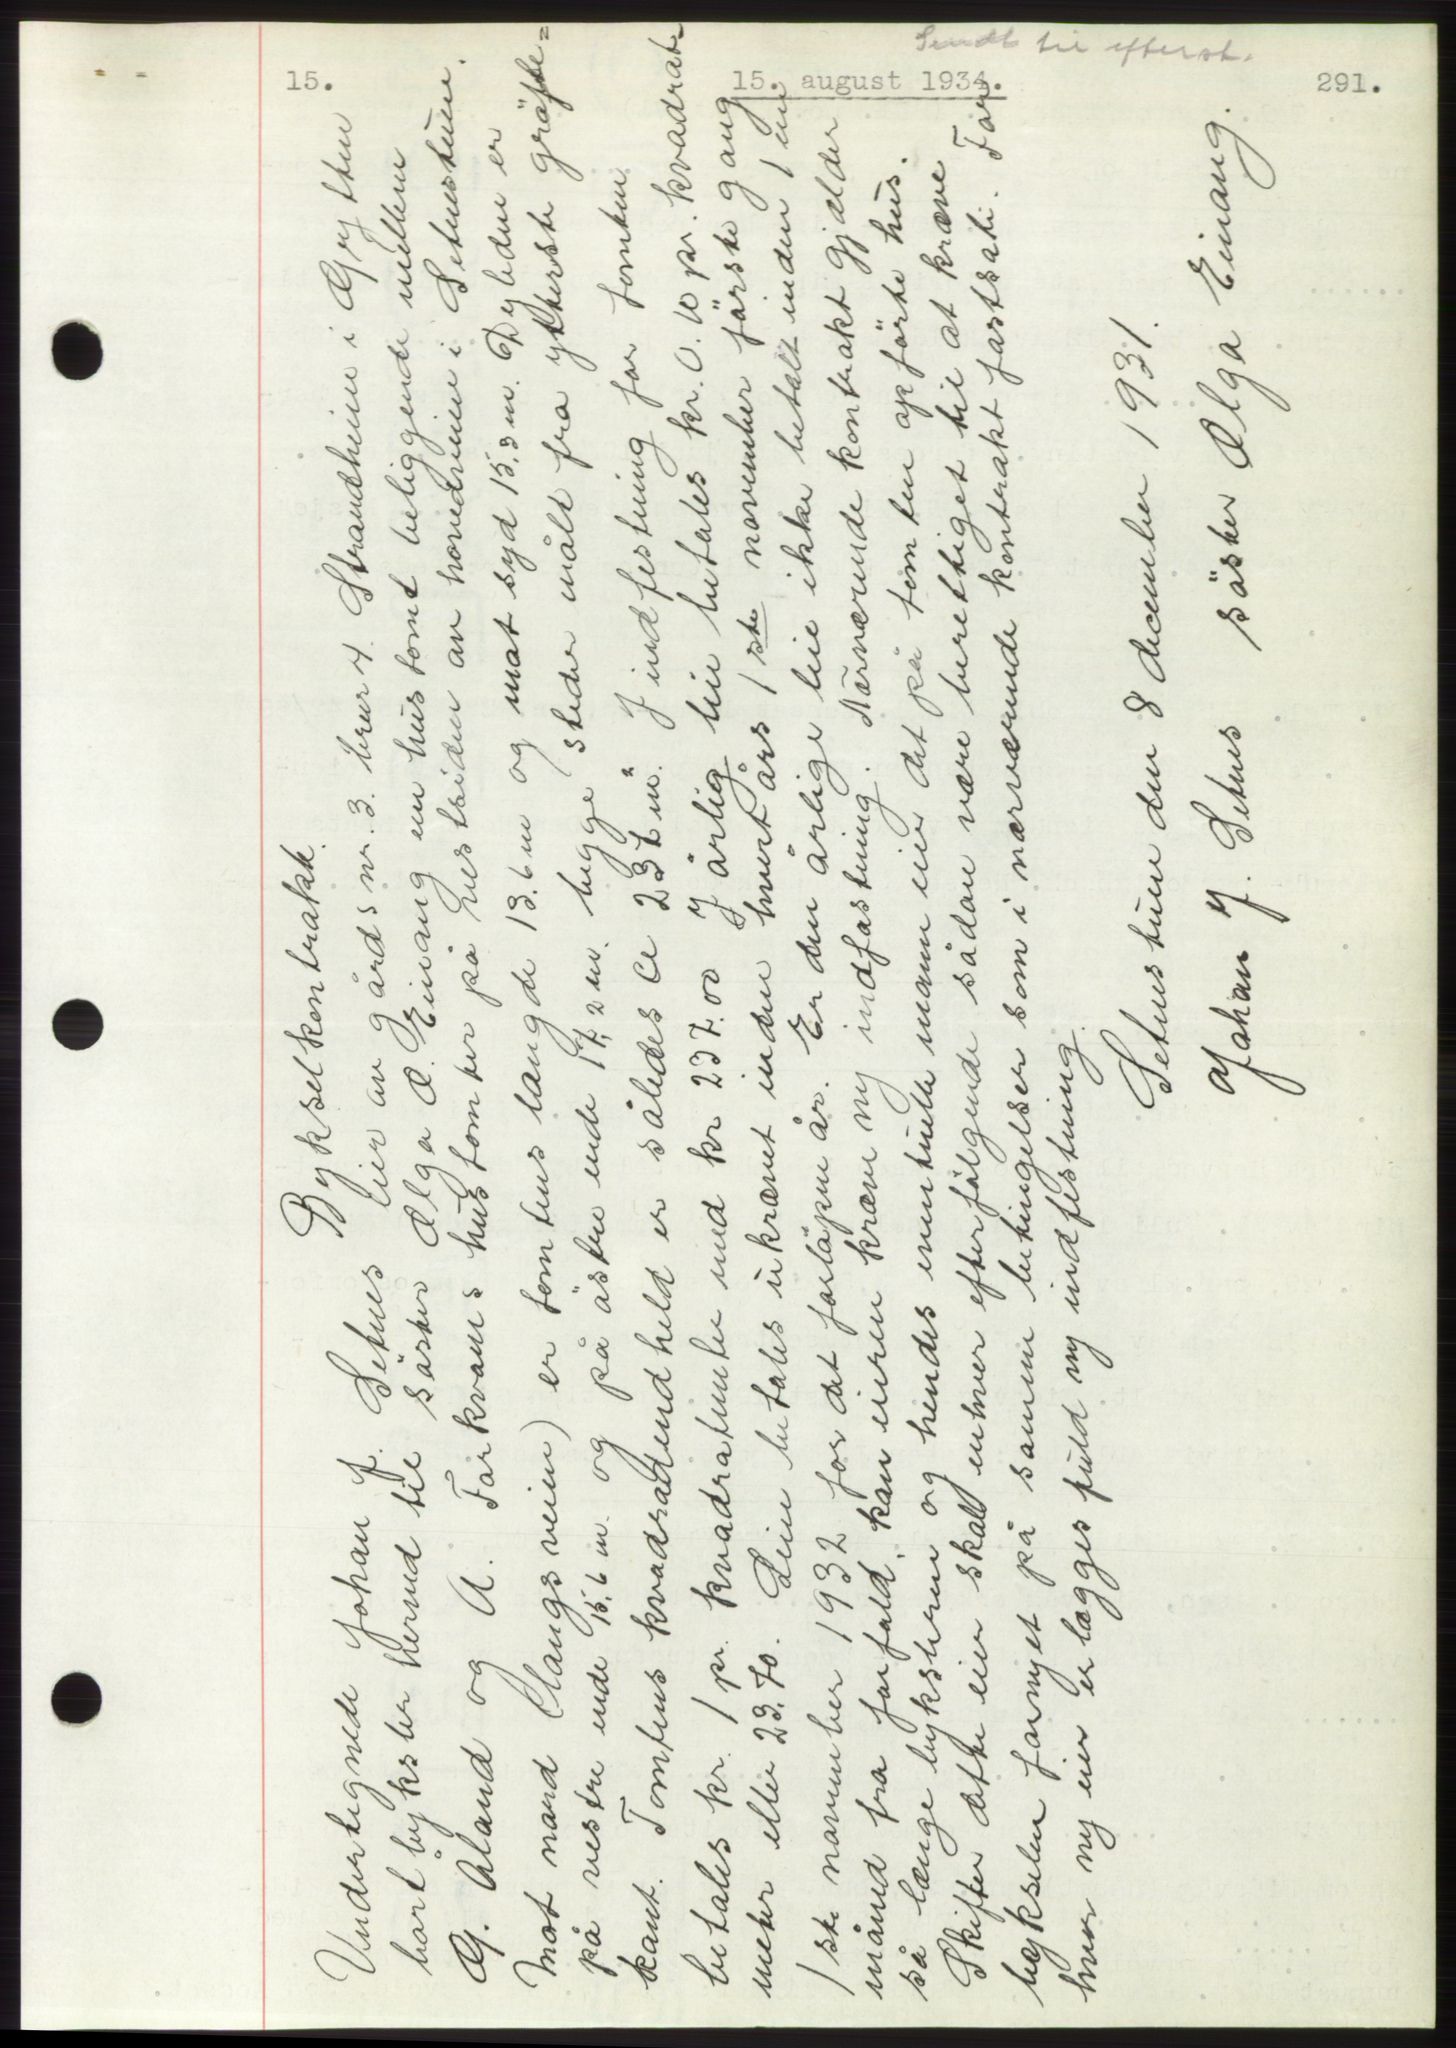 15.
15. august 1934.
291.
Sendt til efterst.
Bykselkontrakt.
Undertegnede Johan J. Setnes eier av gårdsnr. 3. brnr 4. Strandheim i Grytten
bort byksler herved til søster Olga O. Einang en hustomt beliggende mellem
G. Åland og A. Torkvams hustomter på vestsiden av hovedveien i Setnestuen.
Mot nord (langs veien) er tomtens længde 13.6 m og mot syd 15.3 m. Dybden er
på vestre ende 15.6 m. og på østre ende 17.2 m. begge steder målt fra ytterste grøfte=
kant. Tomtens kvadradindhold er således ca 237 m². I indfestning for tomten
betales kr. 1 pr. kvadratmeter med kr 237.00 I årlig leie betales kr. 0.10 pr. kvadrat=
meter eller 23.70. Leien betales ukrævet inden hvert års 1ste november første gang
1ste november 1932 for det forløpne år. Er den årlige leie ikke betalt inden 1 en
måned fra forfald, kan eieren kræve ny indfæstning. Nærværende kontrakt gjælder
så længe byksleren og hendes eventuelle mann eier det på tomten opførte hus.
Skifter dette eier skal enhver efterfølgende sådan være berettiget til at kræve
bykselen fornyet på samme betingelser som i nærværende kontrakt fastsatt. For
hver ny eier erlægges fuld ny indfestning.
Setnestuen den 8 december 1931.
Johan J. Setnes søster Olga Einang.